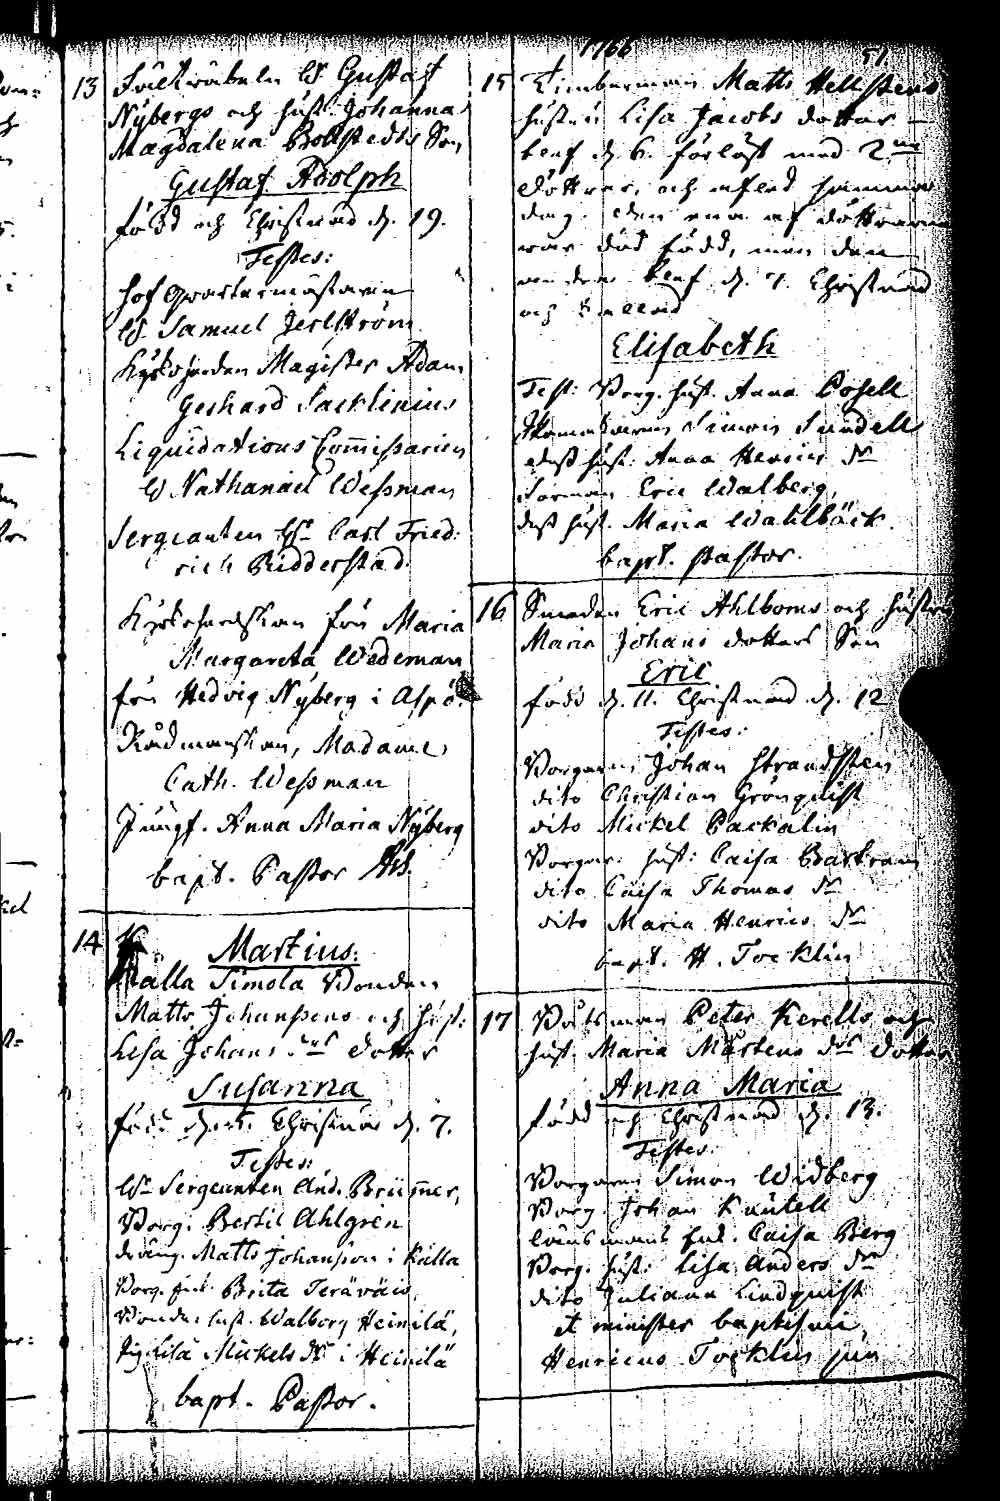 1766
51.
13 Fältwäbeln H. Gustaf
Nybergs och hust. Johanna
Magdalena Bollstedts Son
Gustaf Adolph
född och Christnad d. 19.
Testes:
Hof Qvartermästaren
H. Samuel Jerlström
Kyrkoherden Magister Adam
Gerhard Sacklinius
Liquidations Commissarien
H Nathanael Wessman
Sergeanten Hr Carl Fried:
rich Ridderstad.
Kyrkoherdskan fru Maria
Margareta Wedeman
fru Hedvig Nyberg i Aspö.
Rådmanskan, Madame
Cath. Wessman
Jungf. Anna Maria Nyberg
bapt. Pastor
14 Martius.
Kalla Simola Bonden
Matts Johanssons och hust:
Lisa Johans dotter
Susanna
född d. 5. Christnad d. 7.
Testes:
Hr Sergeanten And. Brummer,
Borg. Bertil Ahlgrén
dräng. Matts Johansson i Källa
Borg. hust. Brita Teräväin,
Bonde: hust. Walborg Heinilä,
Pig. Lisa Mickels dr i Heinilä
bapt. Pastor.
15 Timberman Matts Hellstens
hustru Lisa Jacobs dotter
blef d. 6. förlöst med 2ne
döttrar, och afled samma
dag. den ena af döttrarna
war död född, men den
andra blef d. 7. Christnad
och kallad
Elisabeth
Test: Borg. hust. Anna Posell
Simon Sundell
dess hust. Anna Henrics dr
Eric Walberg,
dess hust. Maria Wahlbäck.
bapt. Pastor.
16 Smeden Eric Ahlboms och hustru
Maria Johans dotters Son
Eric
född d. 11. Christnad d. 12
Testes:
Borgaren Johan Strandsten
dito Christian Grönquist
dito Mickel Packalin
Borgar. hust: Caisa Bartram
dito Caisa Thomas dr
dito Maria Henrics dr
bapt. H. Tocklin
17 Båtsman Peter Kerells och
hust. Maria Mårtens drs dotter
Anna Maria
född och Christnad d. 13.
Testes:
Borgaren Simon Widberg
Borg. Johan Kautell
länsmans hust. Caisa Berg
Borg. hust. Lisa Anders dr
dito Juliana Lindquist
et minister baptismi
Henricus Tocklin jun